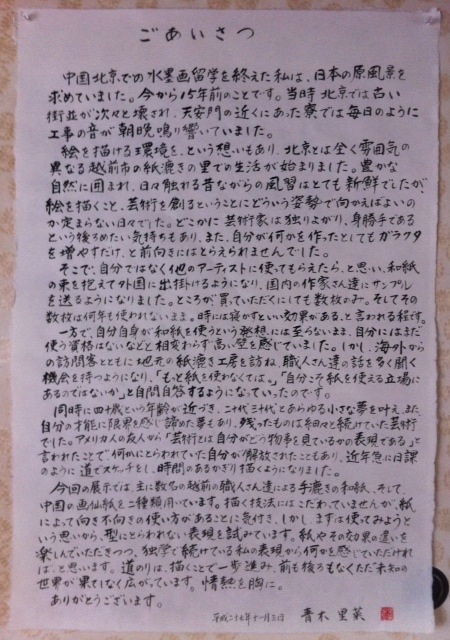 ごあいさつ
中国北京での水墨画留学を終えた私は、日本の原風景を
求めていました。今から15年前のことです。当時 北京では古い
街並が次々と壊され、天安門の近くにあった寮では毎日のように
工事の音が朝晩鳴り響いていました。
絵を描ける環境を、という想いもあり、北京とは全く雰囲気の
異なる越前市の紙漉きの里での生活が始まりました。豊かな
自然に囲まれ、日々触れる昔ながらの風習はとても新鮮でしたが
絵を描くこと、芸術を創るということにどういう姿勢で向かえばよいの
か定まらない日々でした。どこかに芸術家は独りよがり、身勝手である
という後ろめたい気持ちもあり、また、自分が何かを作ったとしてもガラクタ
を増やすだけ、と前向きにはとらえられませんでした。
そこで、自分ではなく他のアーティストに使ってもらえたら、と思い、和紙
の束を抱えて外国に出掛けるようになり、国内の作家さん達にサンプル
を送るようになりました。ところが、買っていただくにしても数枚のみ。そしてその
数枚は何年も使われないまま。時には寝かすといい効果がある、と言われる程です。
一方で、自分自身が和紙を使うという発想には至らないまま、自分にはまだ
使う資格はないなどと相変わらず高い壁を感じていました。しかし、海外から
の訪問客とともに地元の紙漉き工房を訪ね、職人さん達の話を多く聞く
機会を持つようになり、「もっと紙を使わなくては。」「自分こそ紙を使える立場に
あるのではないか」と自問自答するようになっていったのです。
同時に四十歳という年齢が近づき、二十代三十代とあらゆる小さな夢を叶え、また
自分の才能に限界を感じ諦めた夢もあり、残ったものは細々と続けていた芸術
でした。アメリカ人の友人から「芸術とは自分がどう物事を見ているかの表現である」と
言われたことで、何かにとらわれていた自分が解放されたこともあり、近年急に日課
のように道でスケッチをし、時間のあるかぎり描くようになりました。
今回の展示では、主に数名の越前の職人さん達による手漉きの和紙、そして
中国の画仙紙を二種類用いています。描く技法にはこだわっていませんが、紙
によって向き不向きの使い方があることに気付き、しかし、まずは使ってみようと
いう思いから、型にとらわれない表現を試みています。紙やその効果の違いを
楽しんでいただきつつ、独学で続けている私の表現から何かを感じていただけれ
ば、と思います。道のりは、描くことで一歩進み、前も後ろもなくただ未知の
世界が果てしなく広がっています。情熱を胸に。
ありがとうございます。
平成二十七年十一月三日 青木 里菜